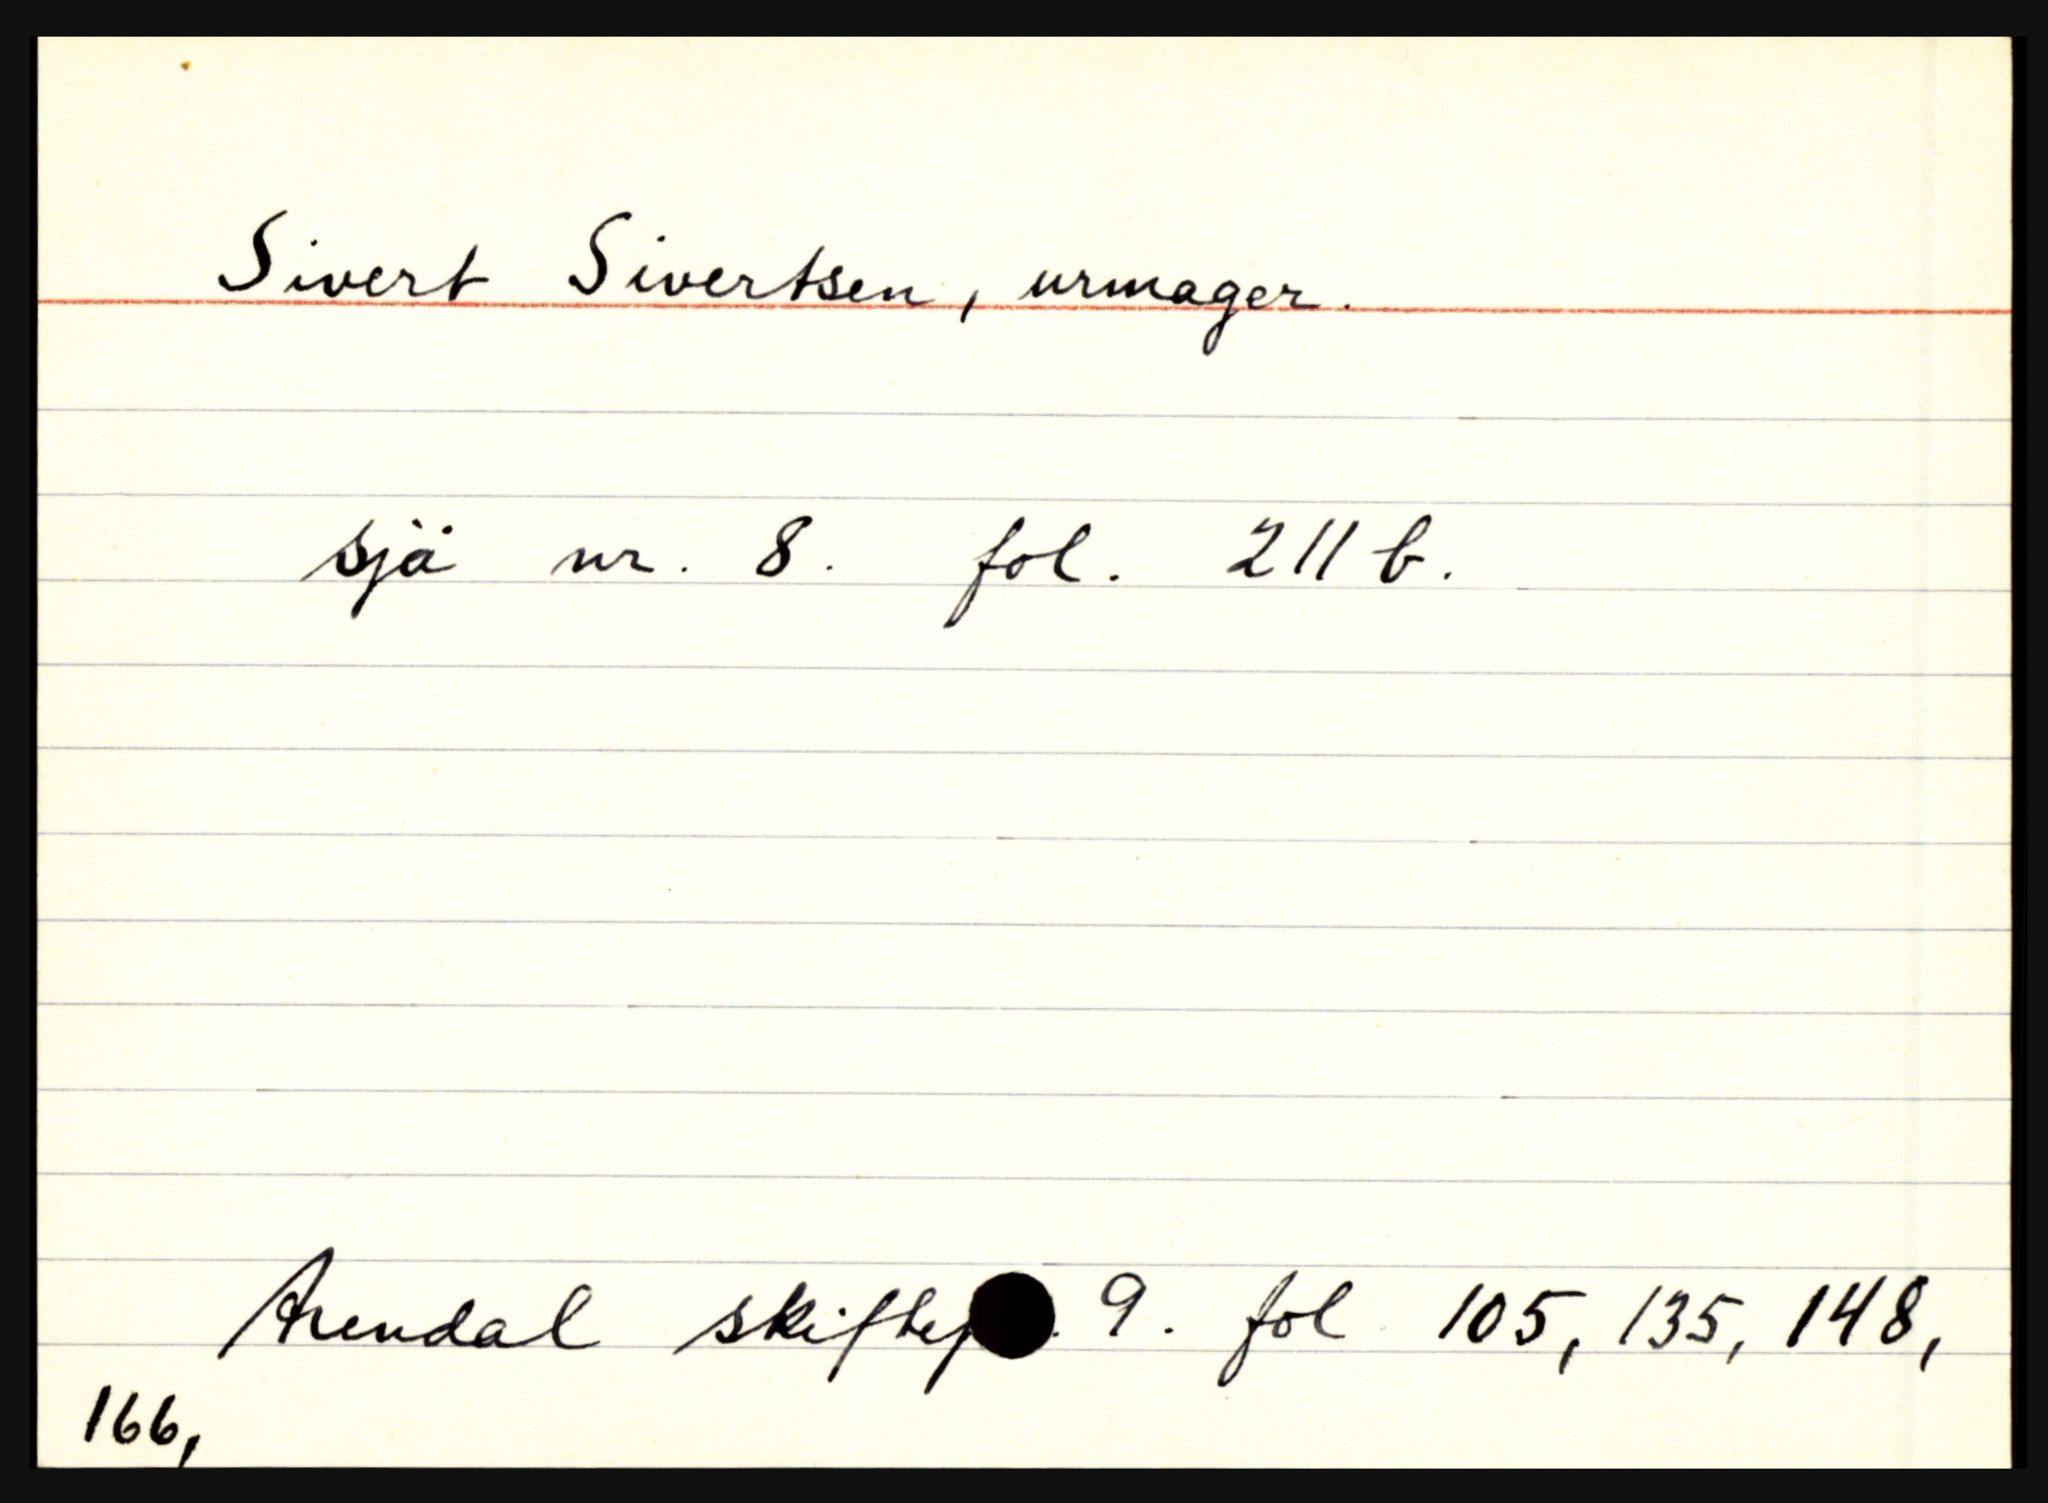 Sivert Sivertsen, urmager.
sjå nr. 8. fol. 211 b.
Arendal 9. fol 105, 135, 148,
166,